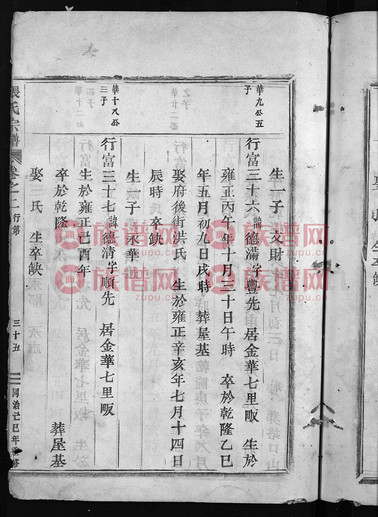 華九公五子
生一子 文財
行富三十六諱德滿字豊先 居金華七里畈 生於
雍正丙午年十月三十日午時 卒於乾隆乙巳
年五月初九日戌時 葬屋基
娶府後街洪氏 生於雍正辛亥年七月十四日
辰時 卒缺
生一子 永華
華十八公三子
行富三十七諱德清字順先 居金華七里畈
生於雍正己酉年
卒於乾隆 葬屋基
娶三氏 生卒缺
張氏宗譜 卷之二 行第 三十五 同治己巳年重修
族谱网
zupu.cn